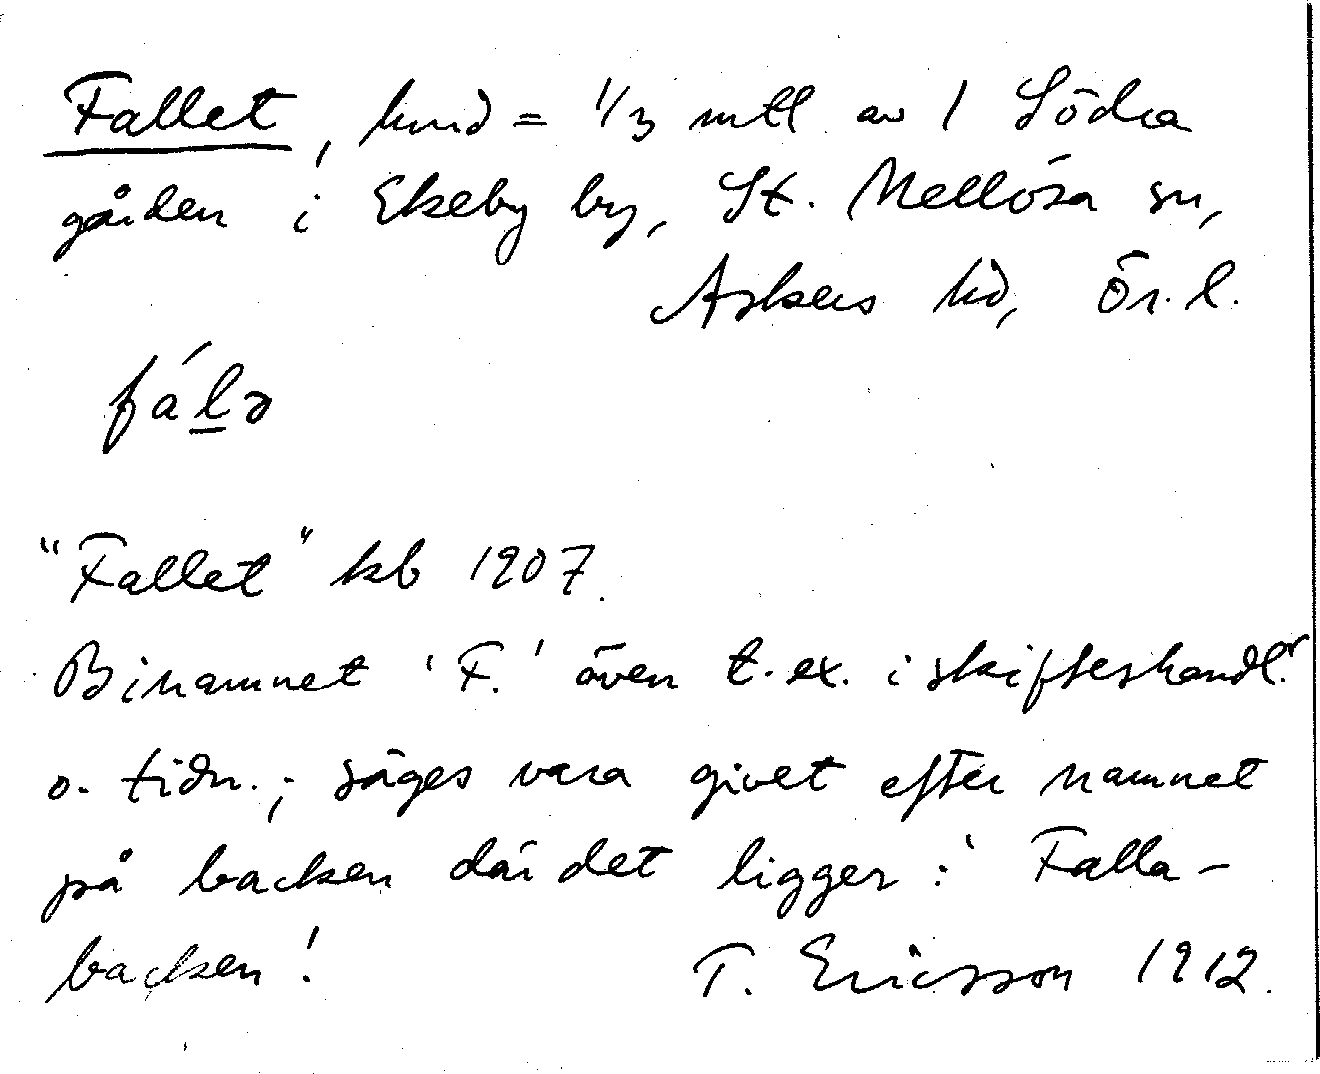 Fallet, hmd = 1/3 mtl av 1 Södra
gården i Ekeby by, St. Mellösa sn,
Askers hd, Ör. l.
fálə
"Fallet" kb 1907.
Binamnet 'F.' även t. ex. i skifteshandl:r
o. tidn.; säges vara givet efter namnet
på backen där det ligger: 'Falla-
backen'. T. Ericsson 1912.